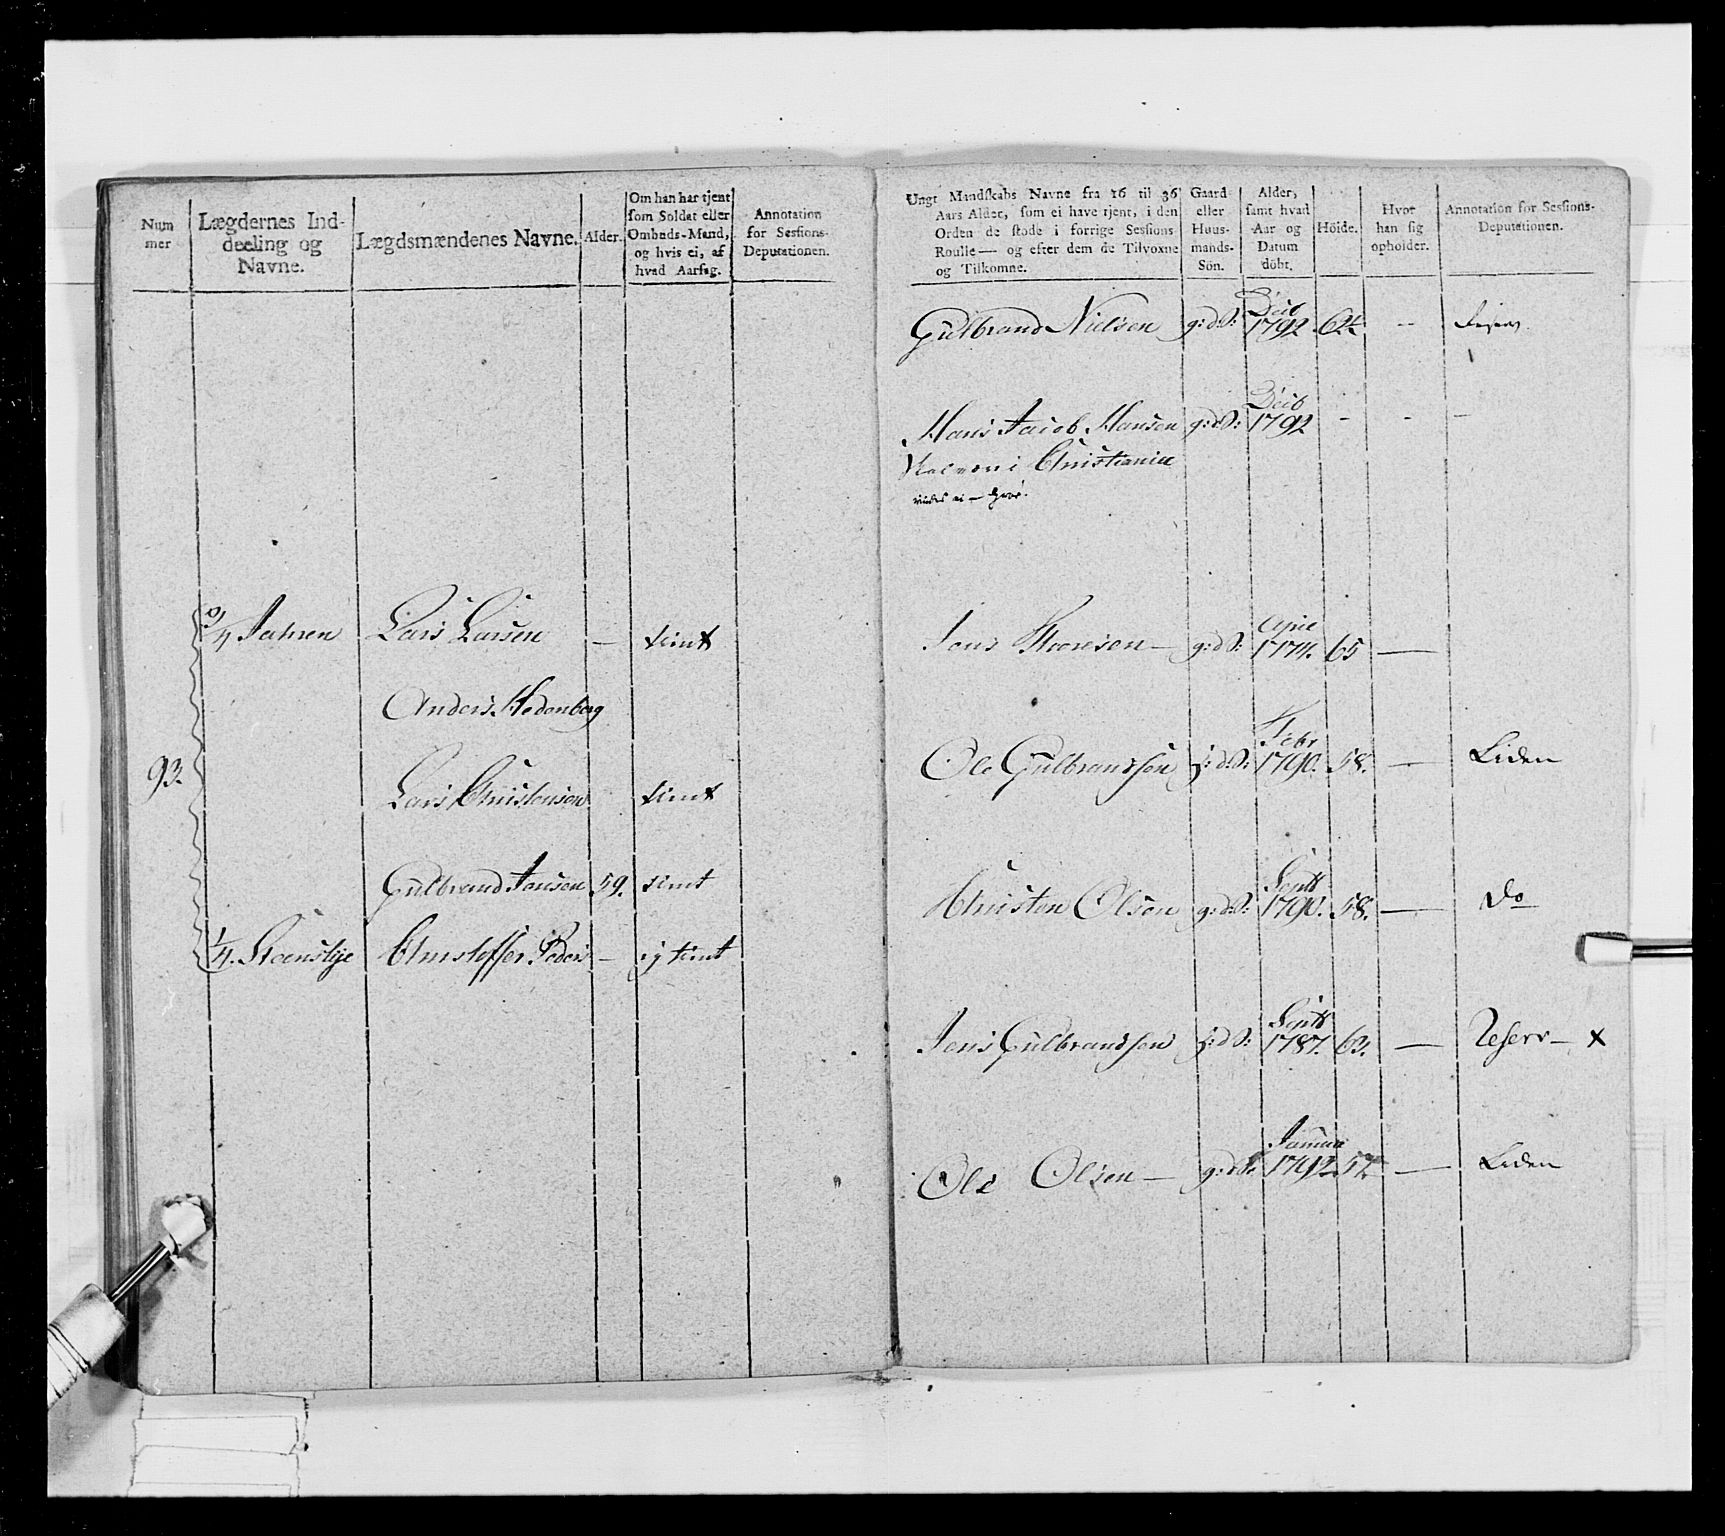 Num
mer
Lægdernes Ind-
deeling og
Navne.
Lægdsmændenes Navne.
Alder.
Om han har tjent
som Soldat eller
Ombuds-Mand,
og hvis ei, af
hvad Aarsag.
Annotation
for Sessions-
Deputationen.
93.
3/4 Jahren Lars Larsen — tient
Anders Hedenberg
Lars Christensen tient
Gulbrand Jensen 59. tient
1/4. Steenslije Christoffer Peders — ej tient
Ungt Mandskabs Navne fra 16 til 36
Aars Alder, som ei have tjent, i den
Orden de stode i forrige Sessions-
Roulle — og efter dem de Tilvoxne
og Tilkomne.
Gaard-
eller
Huus-
mands-
Sön.
Alder,
samt hvad
Aar og
Datum
döbt.
Höide.
Hvor
han sig
opholder.
Annotation for Sessions-
Deputationen.
Decb
Gulbrand Nielsen g:d S: 1792 —
Decb
Hans Jacob Hansen g:d S: 1792 - - -
i Christiania
April
Jens g:d S: 1774. 65 —
Febr
Ole Gulbrandsen g:d S: 1790. 58. — Liden
Septb
Christen Olsen g:d S: 1790. 58. — Do
Septb
Jens Gulbrandsen g:d S: 1787. 63. — Reserv — x
Januar
Ole Olsen — g:d S: 1792. 57. — Liden